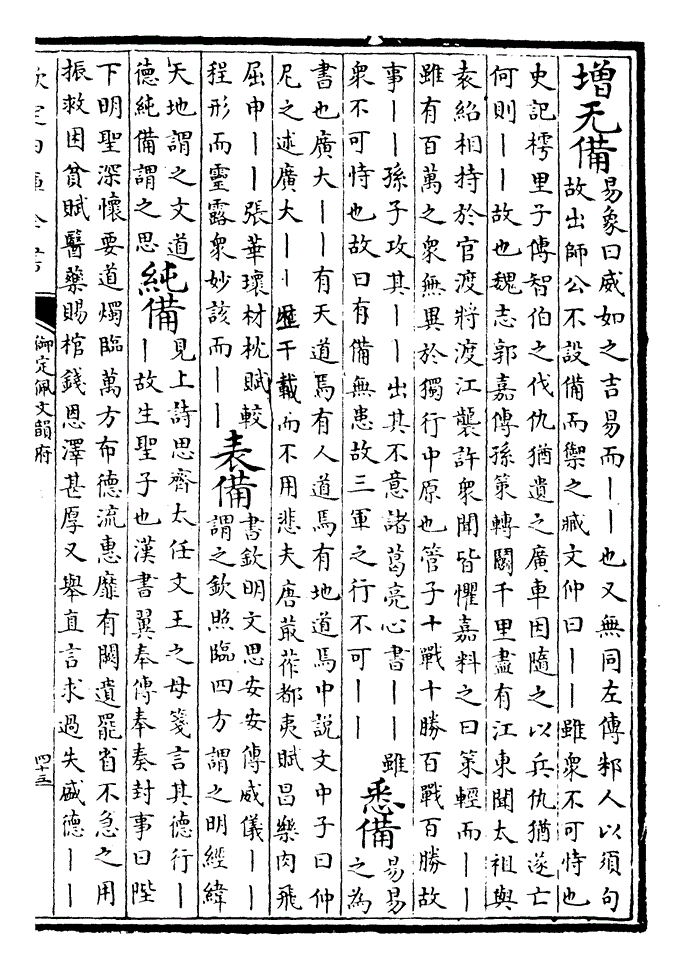 增无備
易象曰威如之吉易而丨丨也又無同左傳邾人以須句
故出師公不設備而禦之臧文仲曰丨丨雖衆不可恃也
史記樗里子傳智伯之伐仇猶遺之廣車因隨之以兵仇猶遂亡
何則丨丨故也魏志郭嘉傳孫策轉鬭千里盡有江東聞太祖與
袁紹相持於官渡將渡江襲許衆聞皆懼嘉料之曰策輕而丨丨
雖有百萬之衆無異於獨行中原也管子十戰十勝百戰百勝故
事丨丨孫子攻其丨丨出其不意諸葛亮心書丨丨雖
衆不可恃也故曰有備無患故三軍之行不可丨丨
悉備
易易
之為
書也廣大丨丨有天道焉有人道焉有地道焉中說文中子曰仲
尼之述廣大丨丨歷千載而不用悲夫唐叢莋都夷賦昌樂肉飛
屈申丨丨張華瓌材枕賦較
程形而靈露衆妙該而丨丨
表備
書欽明文思安安傳威儀丨丨
謂之欽照臨四方謂之明經緯
天地謂之文道
德純備謂之思
純備
見上詩思齊太任文王之母箋言其德行丨
丨故生聖子也漢書翼奉傳奉奏封事曰陛
下明聖深懷要道燭臨萬方布德流惠靡有闕遺罷省不急之用
振救困貧賦醫藥賜棺錢恩澤甚厚又舉直言求過失盛德丨丨
欽定四庫全書
御定佩文韻府
四十三